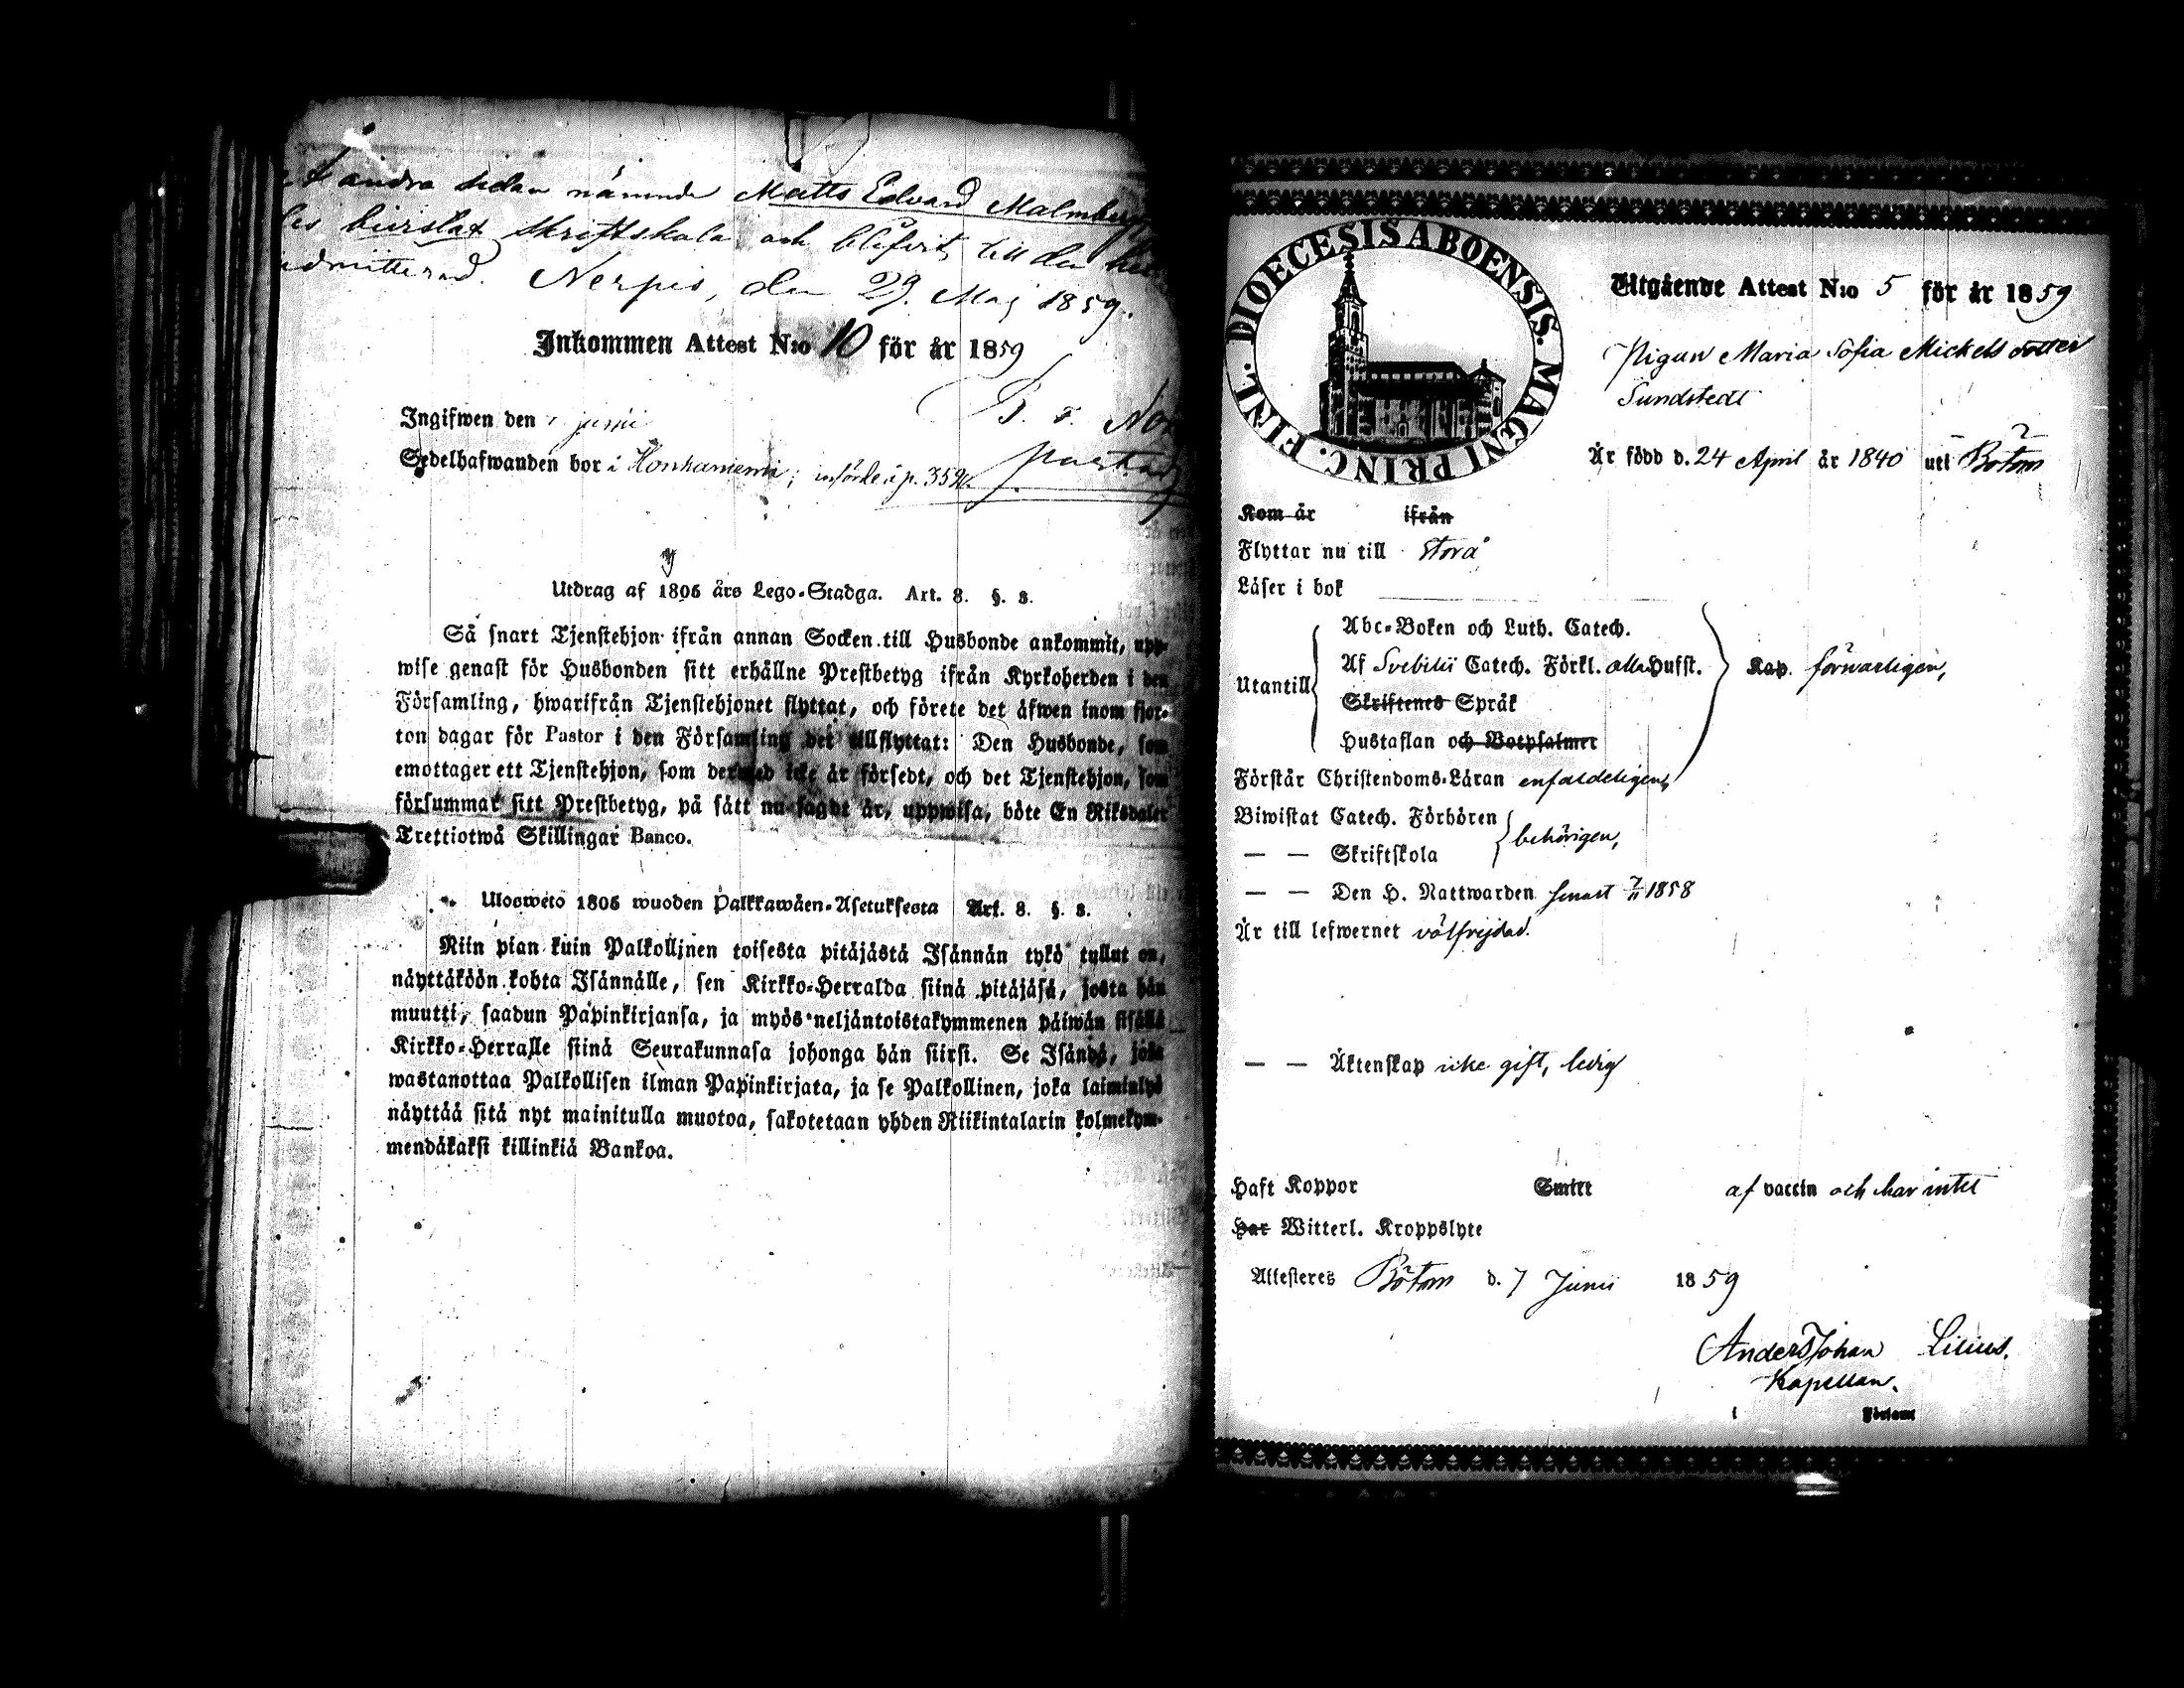 andra sidan nämnde Matts Edvard Malmberg
bivistat Skriftskola och blifvit till den
admitterad. Nerpes, den 29. Maj 1859.
Inkommen Attest N:o 10 för år 1859
Ingifwen den juni
Sedelhafwanden bor i Honkaniemi; införde å p. 359.
Utdrag af 1805 års Lego-Stadga. Art. 8. §. 8.
Så snart Tjenstehjon ifrån annan Socken till Husbonde ankommit, upp-
wise genast för Husbonden sitt erhållne Prestbetyg ifrån Kyrkoherden i den
Församling, hwarifrån Tjenstehjonet flyttat, och förete det äfwen inom fjor-
ton dagar för Pastor i den Församling det tillflyttat: Den Husbonde, som
emottager ett Tjenstehjon, som dermed icke är försedt, och det Tjenstehjon, som
försummar sitt Prestbetyg, på sätt nu sagdt är, uppwisa, böte En Riksdaler
Trettiotwå Skillingar Banco.
Ulosweto 1805 wuoden Palkkawäen-Asetuksesta Art. 8. §. 8.
Niin pian kuin Palkollinen toisesta pitäjästä Isännän tykö tullut on,
näyttäköön kohta Isännälle, sen Kirkko-Herralda siinä pitäjäsä, josta hän
muutti, saadun Papinkirjansa, ja myös neljäntoistakymmenen päiwän sisällä
Kirkko-Herralle siinä Seurakunnasa johonga hän siirsi. Se Isändä, joka
wastanottaa Palkollisen ilman Papinkirjata, ja se Palkollinen, joka laiminlyö
näyttää sitä nyt mainitulla muotoa, sakotetaan yhden Riikintalarin kolmekym-
mendäkaksi killinkiä Bankoa.
DIOECESIS ABOENSIS. MAGNI PRINC. FINL.
Utgående Attest N:o 5 för år 1859
Pigan Maria Sofia Mickelsdotter
Sundstedt
Är född d. 24 April år 1840 uti Bötom
Kom år ifrån
Flyttar nu till Storå
Läser i bok
Abc-Boken och Luth. Catech.
Utantill Af Svebilii Catech. Förkl. Hufst. Kap. försvarligen,
Skriftenes Språk
Hustaflan och Botpsalmer
Förstår Christendoms-Läran enfaldeligen,
Biwistat Catech. Förhören
behörigen,
— — Skriftskola
— — Den H. Nattwarden senast 7/11 1858
Är till lefwernet välfrejdad.
— — Äktenskap icke gift, ledig
Haft Koppor Smitt af vaccin och har intet
Har Witterl. Kroppslyte
Attesteres Bötom d. 7 Junii 1859
Anders Johan Lilius.
Kapellan.
i Församl